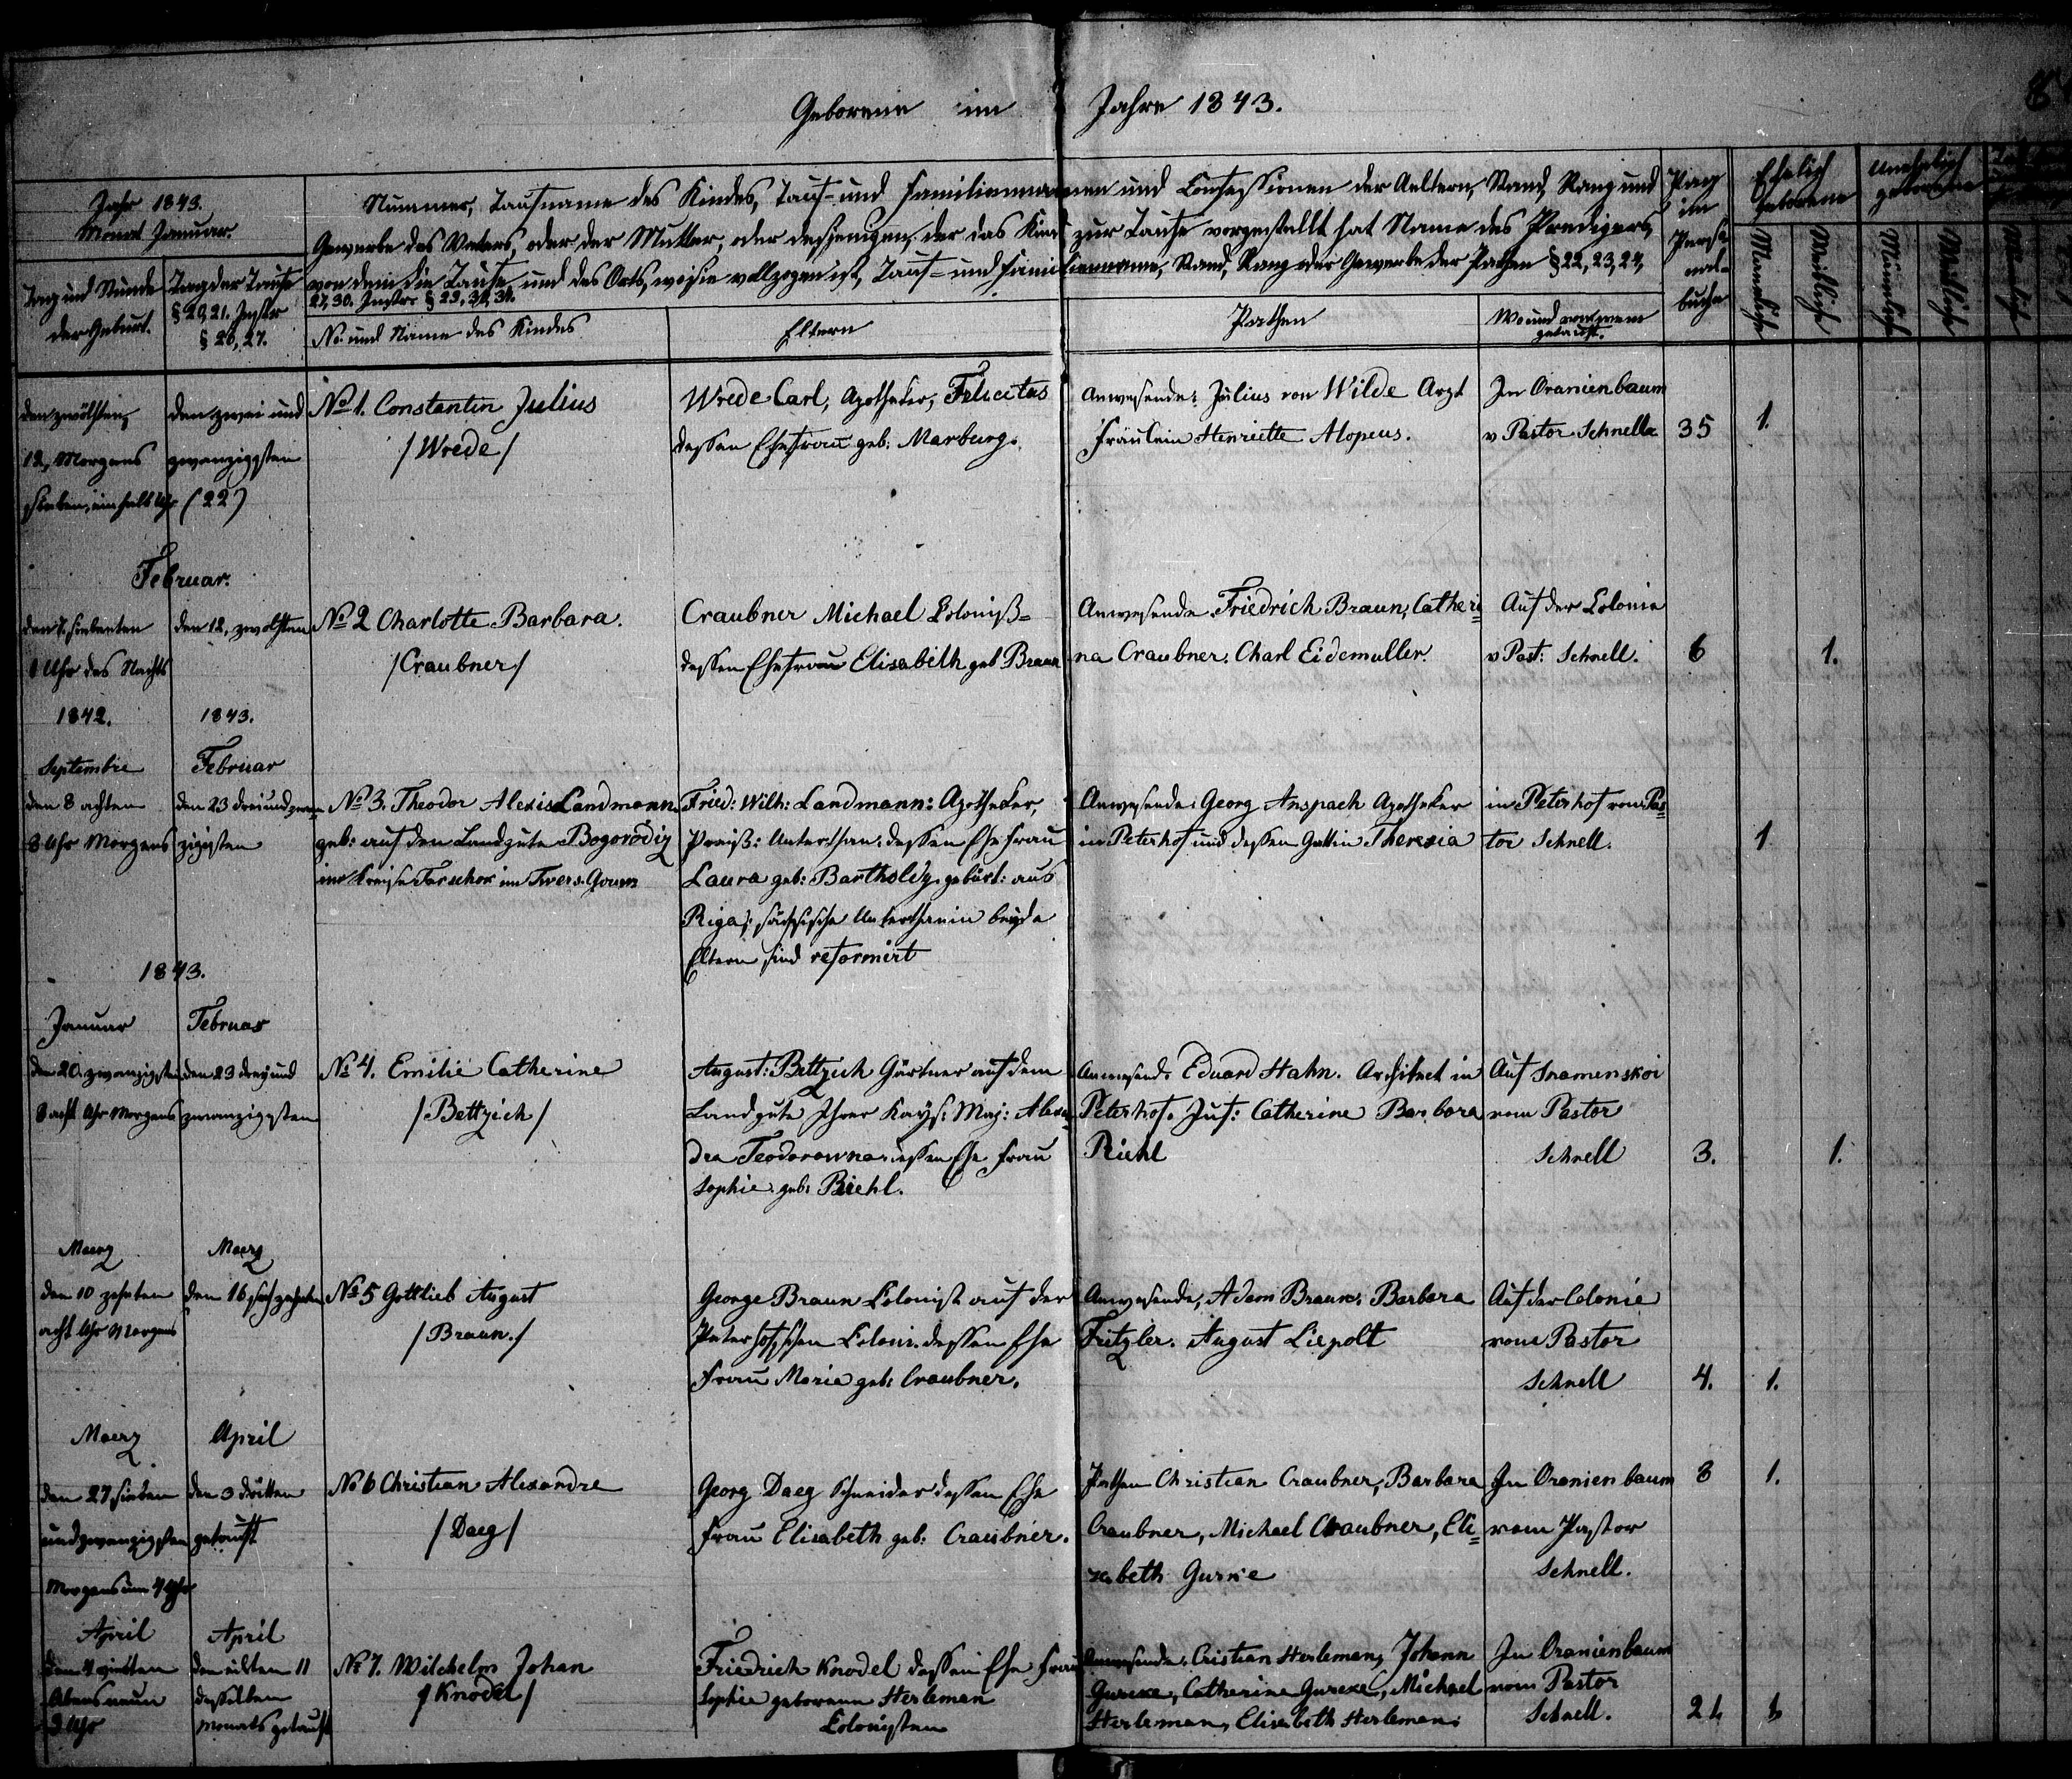 Geborene im Jahre 1843.
8
Jahr 1843.
Monat Januar.
Tag und Stunde
der Geburt.
Tag der Taufe
§ 20, 21. Instr
§ 26, 27.
Nummer, Taufname des Kindes, Tauf- und Familiennamen und Confessionen der Aeltern, Stand, Rang und
Gewerbe des Vaters, oder der Mutter, oder desjenigen, der das Kind zur Taufe vorgestellt hat Name des Predigers,
von dem die Taufe und des Orts, wo sie vollzogen ist, Tauf- und Familienname, Stand, Rang oder Gewerbe der Pathen § 22, 23, 24,
27, 30. Instr §
No und Name des Kindes
Eltern
Pathen
Wo und von wem
getauft.
Pag
im
Perso
nal-
buche
Ehelich
geborene
Unehelich
geborene
Männliche
Weibliche
Männliche
Weibliche
den zwölften,
12, Morgens
sieben, ein halb Uhr
den zwei und
zwanzigsten
(22)
No 1. Constantin Julius
/Wrede/
Wrede Carl, Apotheker, Felicitas
dessen Ehefrau geb: Marburg.
Anwesende: Julius von Wilde Arzt
Fräulein Henriette Alopeus.
In Oranienbaum
v Pastor Schnell
35
1.
Februar.
den 7. siebenten
1 Uhr des Nachts
den 12. zwölften
No 2 Charlotte Barbara.
/Craubner/
Craubner Michael Colonist
dessen Ehefrau Elisabeth geb Braun
Anwesende. Friedrich Braun, Catheri
na Craubner. Charl Eidemuller.
Auf der Colonie
v Past: Schnell.
6
1.
1842.
Septembre
den 8 achten
8 Uhr Morgens
1843.
Februar
den 23 dreiundzwan
zigsten
No 3. Theodor Alexis Landmann
geb: auf dem Landgute Bogorodiz
im Kreise im Twers. Gouv
Fried: Wilh: Landmann: Apotheker,
Preuß: Unterthan. dessen Ehe Frau
Laura geb: Bartholdy. gebürt: aus
Riga: sächsische Unterthanin beyde
Eltern sind reformirt
Anwesende: Georg Anspach Apotheker
in Peterhof und dessen Gattin Theresia
in Peterhof vom Pas
tor Schnell.
1
1843.
Januar
den 20. zwanzigsten
8 acht Uhr Morgens
Februar
den 23 drey und
zwanzigsten
No 4. Emilie Catherine
/Bettzich/
August: Bettzich Gärtner auf dem
Landgute Ihrer Kays: Maj: Alexan
dra Feodorowna. dessen Ehe Frau
Sophie. geb: Riehl.
Anwesend. Eduard Hahn. Architect in
Peterhof. Catherine Barbara
Riehl
Auf Snamenskoi
vom Pastor
Schnell
3.
1.
Maerz
den 10 zehnten
acht Uhr Morgens
Maerz
den 16 sechzehnten
No 5 Gottlieb August
/Braun./
George Braun Colonist auf der
Peterhofschen Colonie. dessen Ehe
Frau Maria geb: Craubner.
Anwesende, Adam Braun, Barbara
Fritzler. August Liepolt
Auf der Colonie
vom Pastor
Schnell
4.
1.
Maerz
den 27 sieben
und zwanzigsten
Morgens um 4 Uhr
April
den 3 dritten
getauft
No 6 Christian Alexandre
/Daeg/
Georg Daeg Schneider dessen Ehe
Frau Elisabeth geb: Craubner.
Pathen Christian Craubner, Barbara
Craubner, Michael Craubner, Eli
sabeth
In Oranienbaum
vom Pastor
Schnell.
8
1.
April
den 4 vierten
Abens neun
9 Uhr
April
den elften 11
desselben
Monats getauft
No 7. Wilchelm Johan
/Knodel/
Friedrich Knodel dessen Ehe Frau
Sophie geborene Herleman
Colonisten
Anwesende. Cristian Herleman, Johann
Catherine Michael
Herleman, Elisabeth Herleman.
In Oranienbaum
vom Pastor
Schnell.
21
1